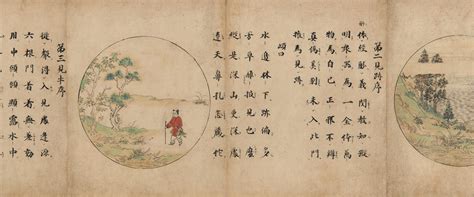 第二見跡序
依經解義閱教知蹤
明衆器為一金體萬
物為自己正邪不辨
真偽奚分未入此門
權為見跡
頌曰
水邊林下跡偏多
芳草離披見也麼
縱是深山更深處
遼天鼻孔怎藏他
第三見牛序
從聲得入見處逢源
六根門著著無差動
用中頭頭顯露水中